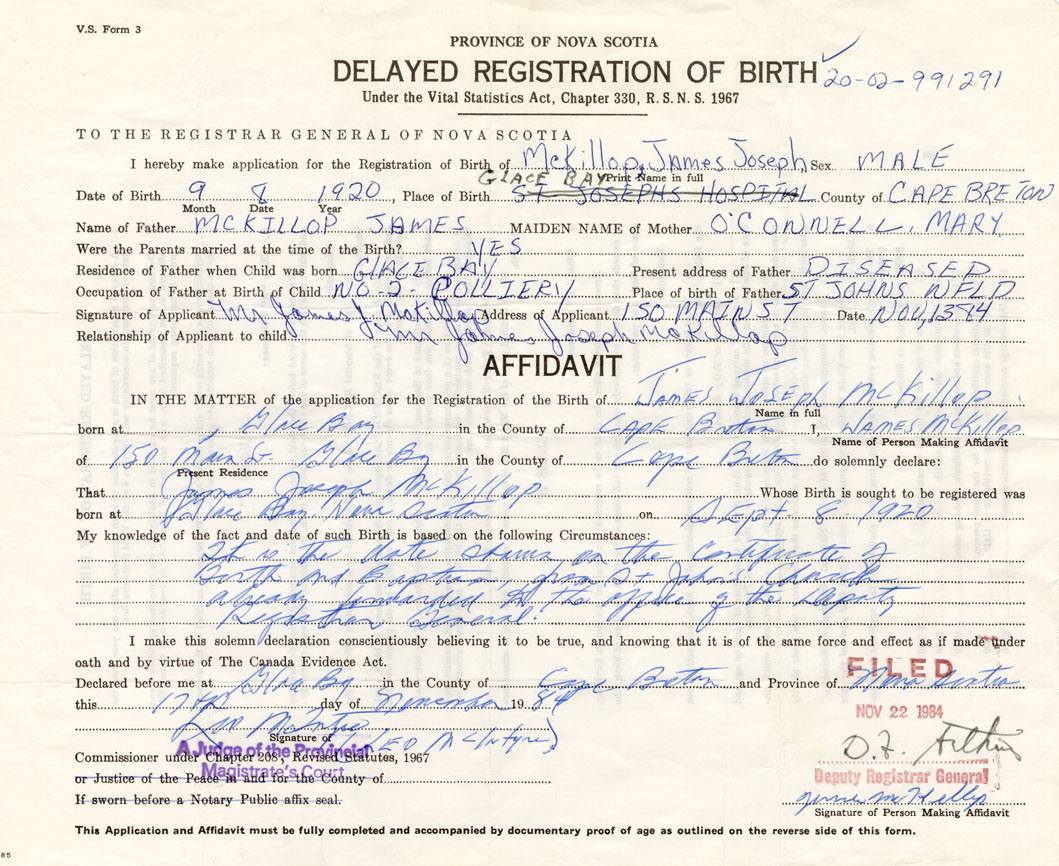 V.S. Form 3
PROVINCE OF NOVA SCOTIA
DELAYED REGISTRATION OF BIRTH 20-02-991291
Under the Vital Statistics Act, Chapter 330, R. S. N. S. 1967
TO THE REGISTRAR GENERAL OF NOVA SCOTIA
I hereby make application for the Registration of Birth of McKillop, James Joseph, Sex MALE
GLACE BAY Print Name in full
Date of Birth 9 8 1920, Place of Birth ST JOSEPHS HOSPITAL County of CAPE BRETON
Month Date Year
Name of Father MCKILLOP JAMES MAIDEN NAME of Mother O'CONNELL, MARY
Were the Parents married at the time of the Birth? YES
Residence of Father when Child was born GLACE BAY Present address of Father DISEASED
Occupation of Father at Birth of Child NO-2-COLLIERY Place of birth of Father ST JOHNS NFLD
Signature of Applicant Mr James J McKillop Address of Applicant 150 MAIN ST Date NOV,
Relationship of Applicant to child Mr James Joseph McKillop
AFFIDAVIT
IN THE MATTER of the application for the Registration of the Birth of James Joseph McKillop
Name in full
born at Glace Bay in the County of Cape Breton I, James McKillop
Name of Person Making Affidavit
of 150 Main St. Glace Bay in the County of Cape Breton do solemnly declare:
Present Residence
That James Joseph McKillop Whose Birth is sought to be registered was
born at Glace Bay Nova Scotia on Sept. 8 1920
My knowledge of the fact and date of such Birth is based on the following Circumstances:
It is the date shown on the Certificate of
Birth and Baptism, from St John's Church
already forwarded to the office of the Deputy
Registrar General.
I make this solemn declaration conscientiously believing it to be true, and knowing that it is of the same force and effect as if made under
oath and by virtue of The Canada Evidence Act.
FILED
Declared before me at Glace Bay in the County of Cape Breton and Province of Nova Scotia
this 17th day of November 1984
NOV 22 1984
Leo McIntyre
Signature of (LEO McIntyre)
A Judge of the Provincial
Commissioner under Chapter 208, Revised Statutes, 1967
Magistrate's Court
or Justice of the Peace in and for the County of
Deputy Registrar General
If sworn before a Notary Public affix seal.
Signature of Person Making Affidavit
This Application and Affidavit must be fully completed and accompanied by documentary proof of age as outlined on the reverse side of this form.
85